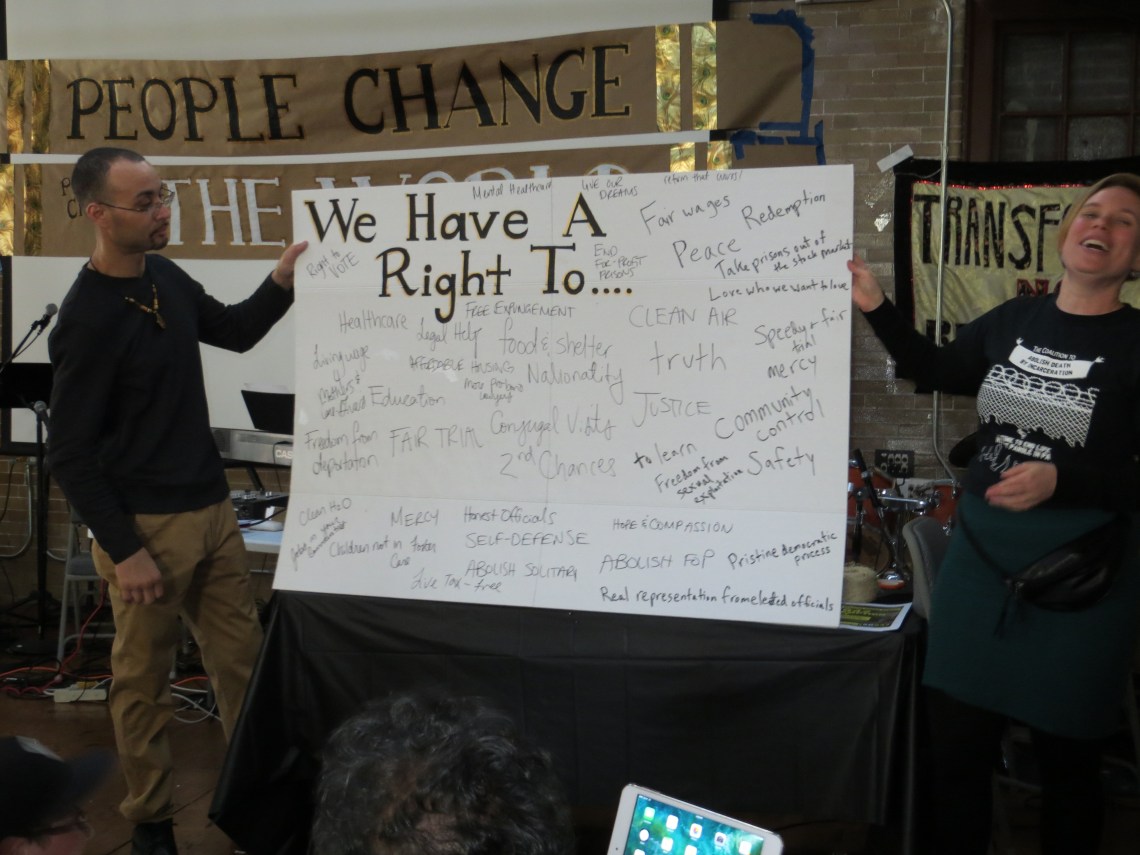 PEOPLE CHANGE
THE WORLD
We Have A
Right To....
Mental Healthcare
LIVE OUR
DREAMS
Fair wages
Redemption
Peace
Right to
VOTE
END
FOR-PROFIT
PRISONS
Take prisons out of
the stock market
Love who we want to love
FREE EXPUNGEMENT
Healthcare
Legal Help
food & shelter
CLEAN AIR
Speedy & fair
trial
Living wage
AFFORDABLE HOUSING
Nationality
truth
mercy
Education
JUSTICE
Community
control
Freedom from
deportation
FAIR TRIAL
Conjugal Visits
2nd Chances
to learn
Freedom from
sexual
exploitation
Safety
Clean H2O
MERCY
Honest Officials
HOPE & COMPASSION
Children not in Foster
Care
SELF-DEFENSE
ABOLISH SOLITARY
ABOLISH FOP
Pristine democratic
process
Live Tax-free
Real representation from elected officials
TRANSFO
THE COALITION TO
ABOLISH DEATH
BY INCARCERATION
CAS